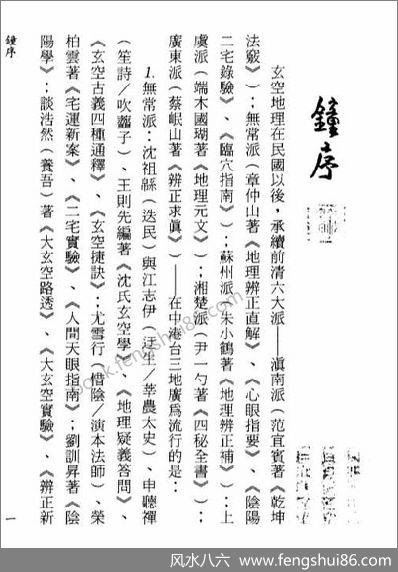 鐘序
玄空地理在民國以後，承續前清六大派——滇南派（范宜賓著《乾坤
法竅》）；無常派（章仲山著《地理辨正直解》、《心眼指要、《陰陽
二宅錄驗》、《臨穴指南》）；蘇州派（朱小鶴著《地理辨正補》）；上
虞派（端木國瑚著《地理元文》）；湘楚派（尹一勺著《四秘全書》）；
廣東派（蔡岷山著《辨正求眞》）——在中港台三地廣爲流行的是：
1.無常派：沈祖緜（迭民）與江志伊（迂生／莘農太史）、申聽禪
（笙詩／吹虀子）、王則先編著《沈氏玄空學》、《地理疑義答問》、
《玄空古義四種通釋》、《玄空捷訣》；尤雪行（惜陰／演本法師）、榮
柏雲著《宅運新案》、《二宅實驗》、《人間天眼指南》；劉訓昇著《陰
陽學》；談浩然（養吾）著《大玄空路透》、《大玄空實驗》、《辨正新
鐘序
一
www.fengshui86.com
风水八六 www.fengshui86.com